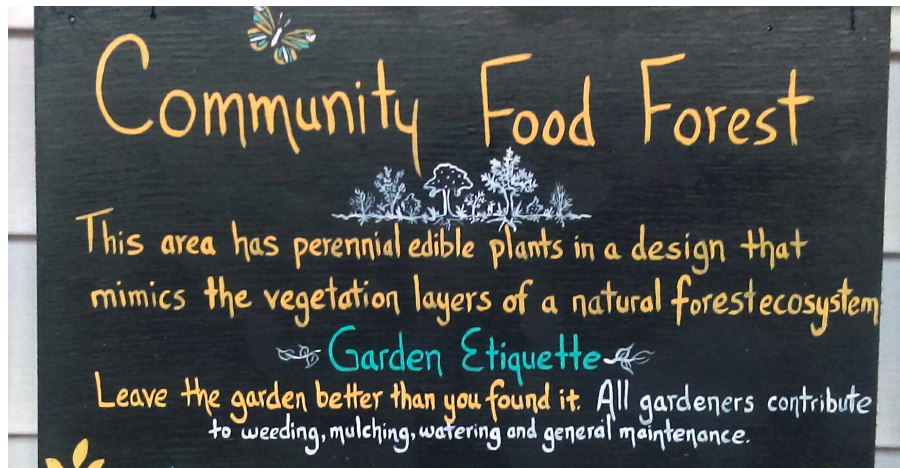 Community Food Forest
This area has perennial edible plants in a design that
mimics the vegetation layers of a natural forest ecosystem
Garden Etiquette
Leave the garden better than you found it. All gardeners contribute
to weeding, mulching, watering and general maintenance.